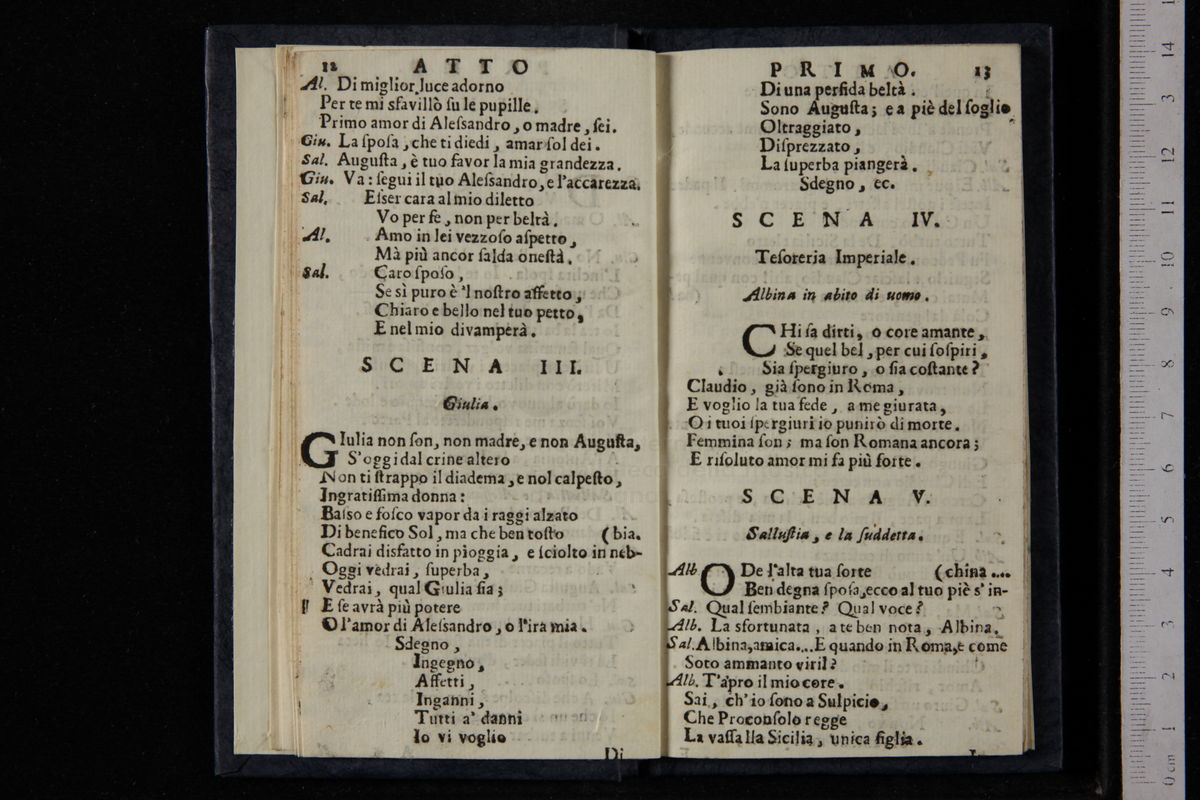 12 ATTO
Al. Di miglior luce adorno
Per te mi sfavillò ſu le pupille.
Primo amor di Aleſsandro, o madre, ſei.
Giu. La ſpoſa, che ti diedi, amar ſol dei.
Sal. Auguſta, è tuo favor la mia grandezza.
Giu. Va: ſegui il tuo Aleſsandro, e l'accarezza.
Sal. Eſser cara al mio diletto
Vo per fe, non per beltà.
Al. Amo in lei vezzoſo aſpetto,
Mà più ancor ſalda oneſtà.
Sal. Caro ſpoſo,
Se sì puro è 'l noſtro affetto,
Chiaro e bello nel tuo petto,
E nel mio divamperà.
SCENA III.
Giulia.
GIulia non ſon, non madre, e non Auguſta,
S'oggi dal crine altero
Non ti ſtrappo il diadema, e nol calpeſto,
Ingratiſſima donna:
Baſso e foſco vapor da i raggi alzato
Di benefico Sol, ma che ben toſto (bia.
Cadrai disfatto in pioggia, e ſciolto in neb-
Oggi vedrai, ſuperba,
Vedrai, qual Giulia ſia;
E ſe avrà più potere
O l'amor di Aleſsandro, o l'ira mia.
Sdegno,
Ingegno,
Affetti,
Inganni,
Tutti a' danni
Io vi voglio
Di
PRIMO. 13
Di una perfida beltà.
Sono Auguſta; e a piè del ſoglio
Oltraggiato,
Diſprezzato,
La ſuperba piangerà.
Sdegno, ec.
SCENA IV.
Teſoreria Imperiale.
Albina in abito di uomo.
CHi ſa dirti, o core amante,
Se quel bel, per cui ſoſpiri,
Sia ſpergiuro, o ſia coſtante?
Claudio, già ſono in Roma,
E voglio la tua fede, a me giurata,
O i tuoi ſpergiuri io punirò di morte.
Femmina ſon; ma ſon Romana ancora;
E riſoluto amor mi fa più forte.
SCENA V.
Salluſtia, e la ſuddetta.
Alb ODe l'alta tua ſorte (china ....
Ben degna ſpoſa, ecco al tuo piè s' in-
Sal. Qual ſembiante? Qual voce?
Alb. La sfortunata, a te ben nota, Albina.
Sal. Albina, amica.... E quando in Roma, e come
Soto ammanto viril?
Alb. T'apro il mio core.
Sai, ch' io ſono a Sulpicio,
Che Proconſolo regge
La vaſſalla Sicilia, unica figlia.